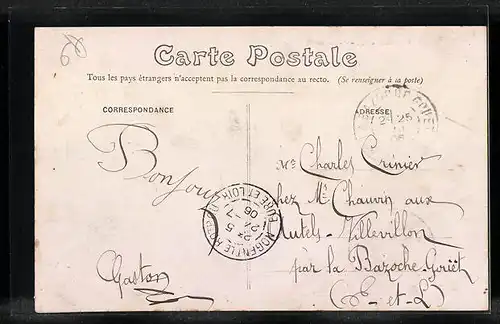 Carte Postale
Tous les pays étrangers n'acceptent pas la correspondance au recto. (Se renseigner à la poste)
CORRESPONDANCE
ADRESSE
Bonjour
Gaston
Mr Charles Crinier
chez Mr Chauvin aux
Autels-Villevillon
par la Bazoche-Gouët
(E-et-L)
NOGENT-LE-R
EURE ET LOIR